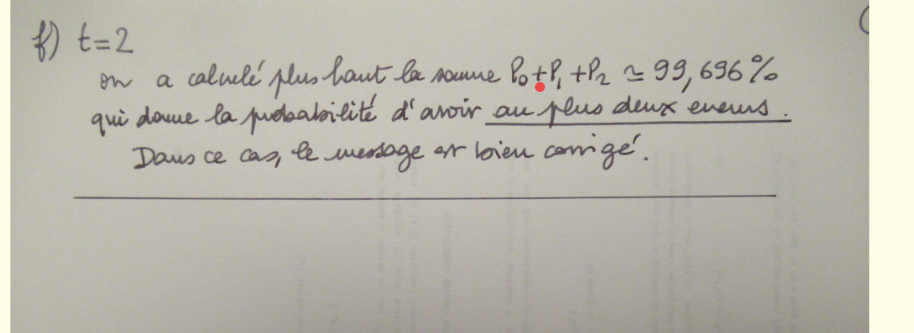 f) t=2
on a calculé plus haut la somme P₀+P₁+P₂ ≃ 99,696%
qui donne la probabilité d'avoir au plus deux erreurs.
Dans ce cas, le message est bien corrigé.